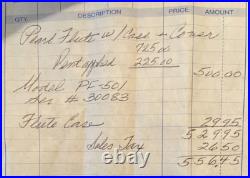 QTY. DESCRIPTION PRICE AMOUNT
Pearl Flute w/ Case + Cover
725.00
Rent applied 225.00
500.00
Model PF-501
Ser # 30083
Flute Case 29.95
529.95
Sales Tax 26.50
556.45